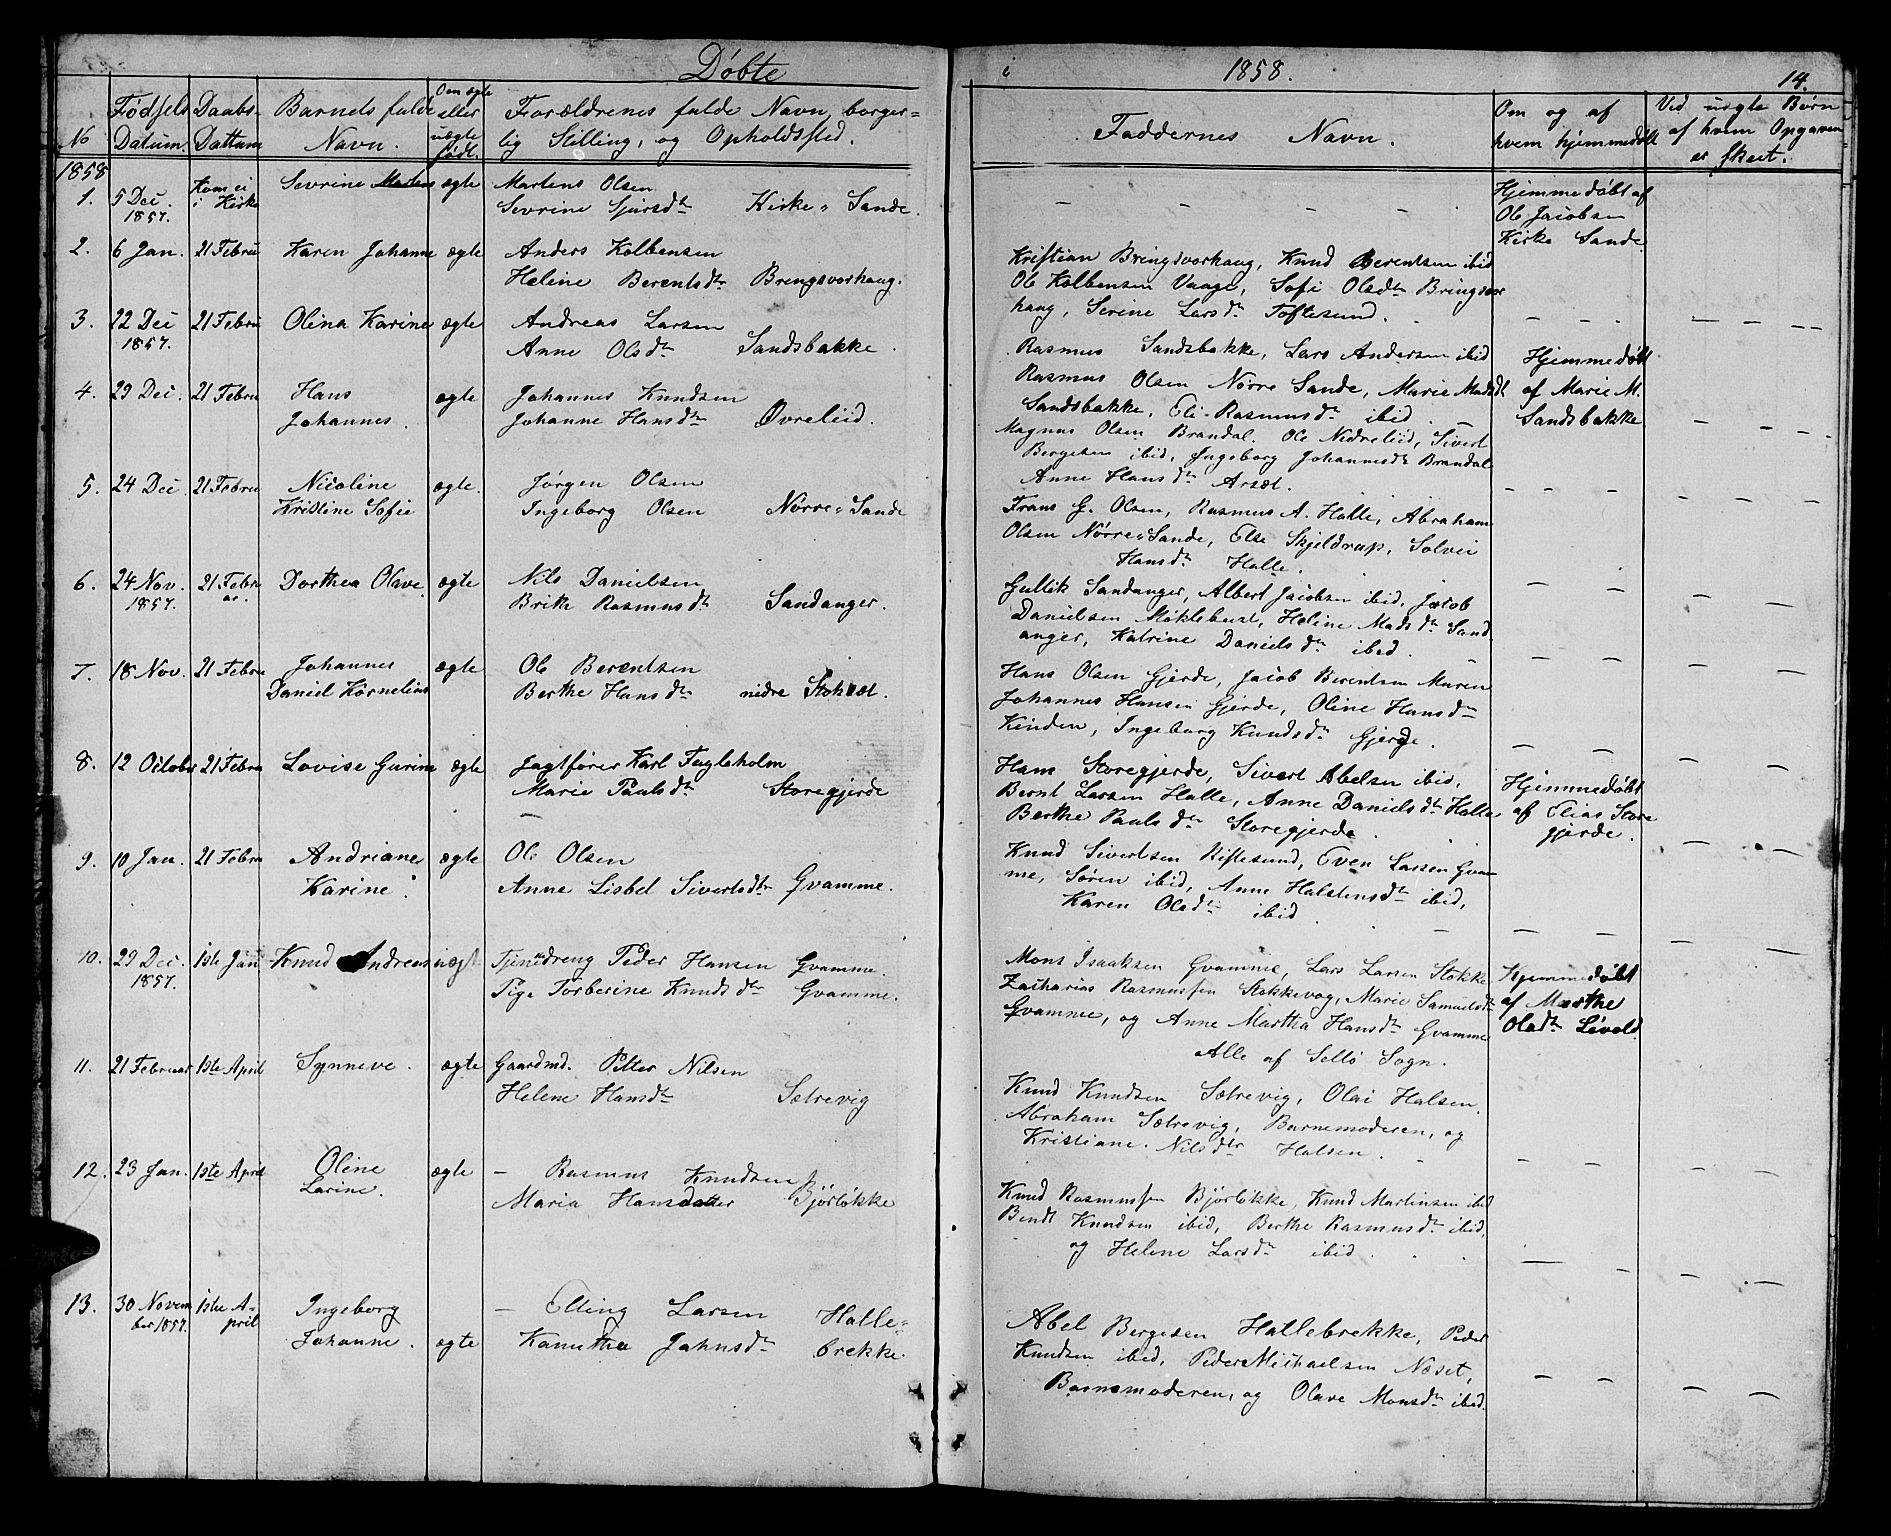 Døbte i 1858. 14.
No
Fødsels Datum
Daabs- Dattum
Barnets fulde Navn.
Om ægte eller uægte født.
Forældrenes fulde Navn, borger= lig Stilling, og Opholdssted.
Faddernes Navn.
Om og af hvem hjemmedøbt
Ved uægte Børn af hvem Opgaven er skeet.
1858
1. 5 Dec. 1857. Kom ei i Kirke Sevrine Martens ægte Martens Olsen
Sevrine Sjursdtr Kirke=Sande.
Hjemmedøbt af
Ole Jacobsen
Kirke Sande
2. 6 Jan. 21 Febru Karen Johanne ægte Anders Kolbensen
Heline Berentsdtr Bringsvorhaug.
Kristian Bringsvorhaug, Knud Berentsen ibid
Ole Kolbensen Vaage, Sofi Olsdtr Bringsvor
haug, Serine Larsdtr Toftesund.
3. 22 Dec 1857. 21 Febru Olina Karine ægte Andreas Larsen
Anne Olsdtr Sandsbakke.
Rasmus Sandsbakke, Lars Andersen ibid
Rasmus Olsen Nørre Sande, Marie Madsdt
Sandsbakke, Eli Rasmusdtr ibid.
Hjemmedøbt
af Marie M.
Sandsbakke
4. 29 Dec. 21 Febru Hans
Johannes. ægte Johannes Knudsen
Johanne Hansdtr Øvreliid.
Magnus Olsen Brandal. Ole Nedreliid, Sivert
Bergesen ibid, Ingeborg Johannesdtr Brandal
Anne Hansdtr Arset.
5. 24 Dec 21 Febru Nicoline
Kristine Sofie ægte. Jørgen Olsen
Ingeborg Olsen Nørre=Sande
Frans G. Olsen, Rasmus A. Halle, Abraham
Olsen Nørre=Sande, Else Skjeldrup, Solvei
Hansdtr Halle.
6. 24 Nov. 1857. 21 Febru ar. Dorthea Olave. ægte Nils Danielsen
Brite Rasmusdtr Sandanger.
Gullik Sandanger, Albert Jacobsen ibid, Jacob
Danielsen Møklebust, Heline Madsdtr Sand
anger, Katrine Danielsdtr ibid.
7. 18 Nov. 21 Febru Johannes
Daniel Kornelius ægte Ole Berentsen
Berthe Hansdtr nedre Stokset.
Hans Olsen Gjerde, Jacob Berentsen Muren
Johannes Hansen Gjerde, Oline Hansdtr
Kinden, Ingeborg Knudsdtr Gjerde.
8. 12 October 21 Febru Lovise Gurine ægte Jagtfører Karl Fugleholm
Marie Paulsdtr Storegjerde
Hans Storegjerde, Sivert Abelsen ibid,
Bernt Larsen Halle, Anne Danielsdtr Halle
Berthe Paulsdtr Storegjerde.
Hjemmedøbt
af Elias Store
gjerde.
9. 10 Jan. 21 Febru Andriane
Karine. ægte Ole Olsen
Anne Lisbet Sivertsdtr Gvamme.
Knud Sivertsen Riftesund, Even Larsen Gvam
me, Søren ibid, Anne Halstensdtr ibid,
Karen Olsdtr ibid.
10. 29 Dec. 1857. 1ste Jan Knud Andreas uægt Tjenedreng Peder Hansen Gvamme.
Pige Torberine Knudsdtr Gvamme.
Mons Isaaksen Gvamme, Lars Larsen Stokke
Zacharias Rasmussen Stokkevog, Marie Samuelsdtr
Gvamme, og Anne Martha Hansdtr Gvamme
Alle af Sellø Sogn.
Hjemmedøbt
af Marthe
Olsdtr Levold.
11. 21 Februar 1ste April Synneve. ægte Gaardmd. Petter Nilsen
Helene Hansdtr Sætrevig
Knud Knudsen Sætrevig, Olai Halsen.
Abraham Sætrevig, Barnemoderen, og
Kristiane Nilsdtr Halsen.
12. 23 Jan. 1ste April Oline
Larine. ægte — Rasmus Knudsen
Maria Hansdatter Bjørløkke
Knud Rasmussen Bjørløkke, Knud Martinsen ibid
Bendt Knudsen ibid, Berthe Rasmusdtr ibid,
og Helene Larsdtr ibid.
13. 30 Novem ber 1857. 1ste A= pril Ingeborg
Johanne. ægte — Elling Larsen Halle=
Kanutha Jahnsdtr brekke.
Abel Bergesen Hallebrekke, Peder
Knudsen ibid, Peder Michaelsen Næset,
Barnemoderen, og Olave Monsdtr ibid.